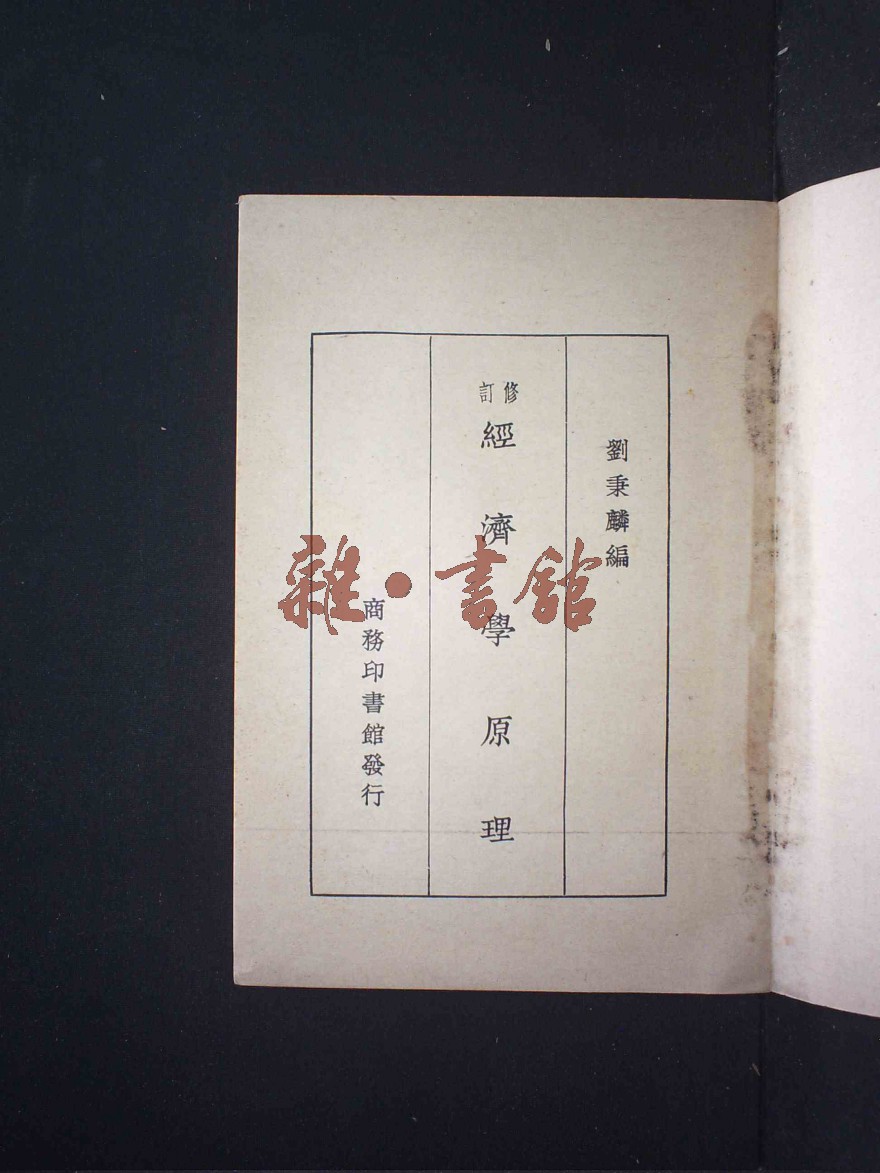 劉秉麟編
修訂
經濟學原理
商務印書館發行
雜·書館